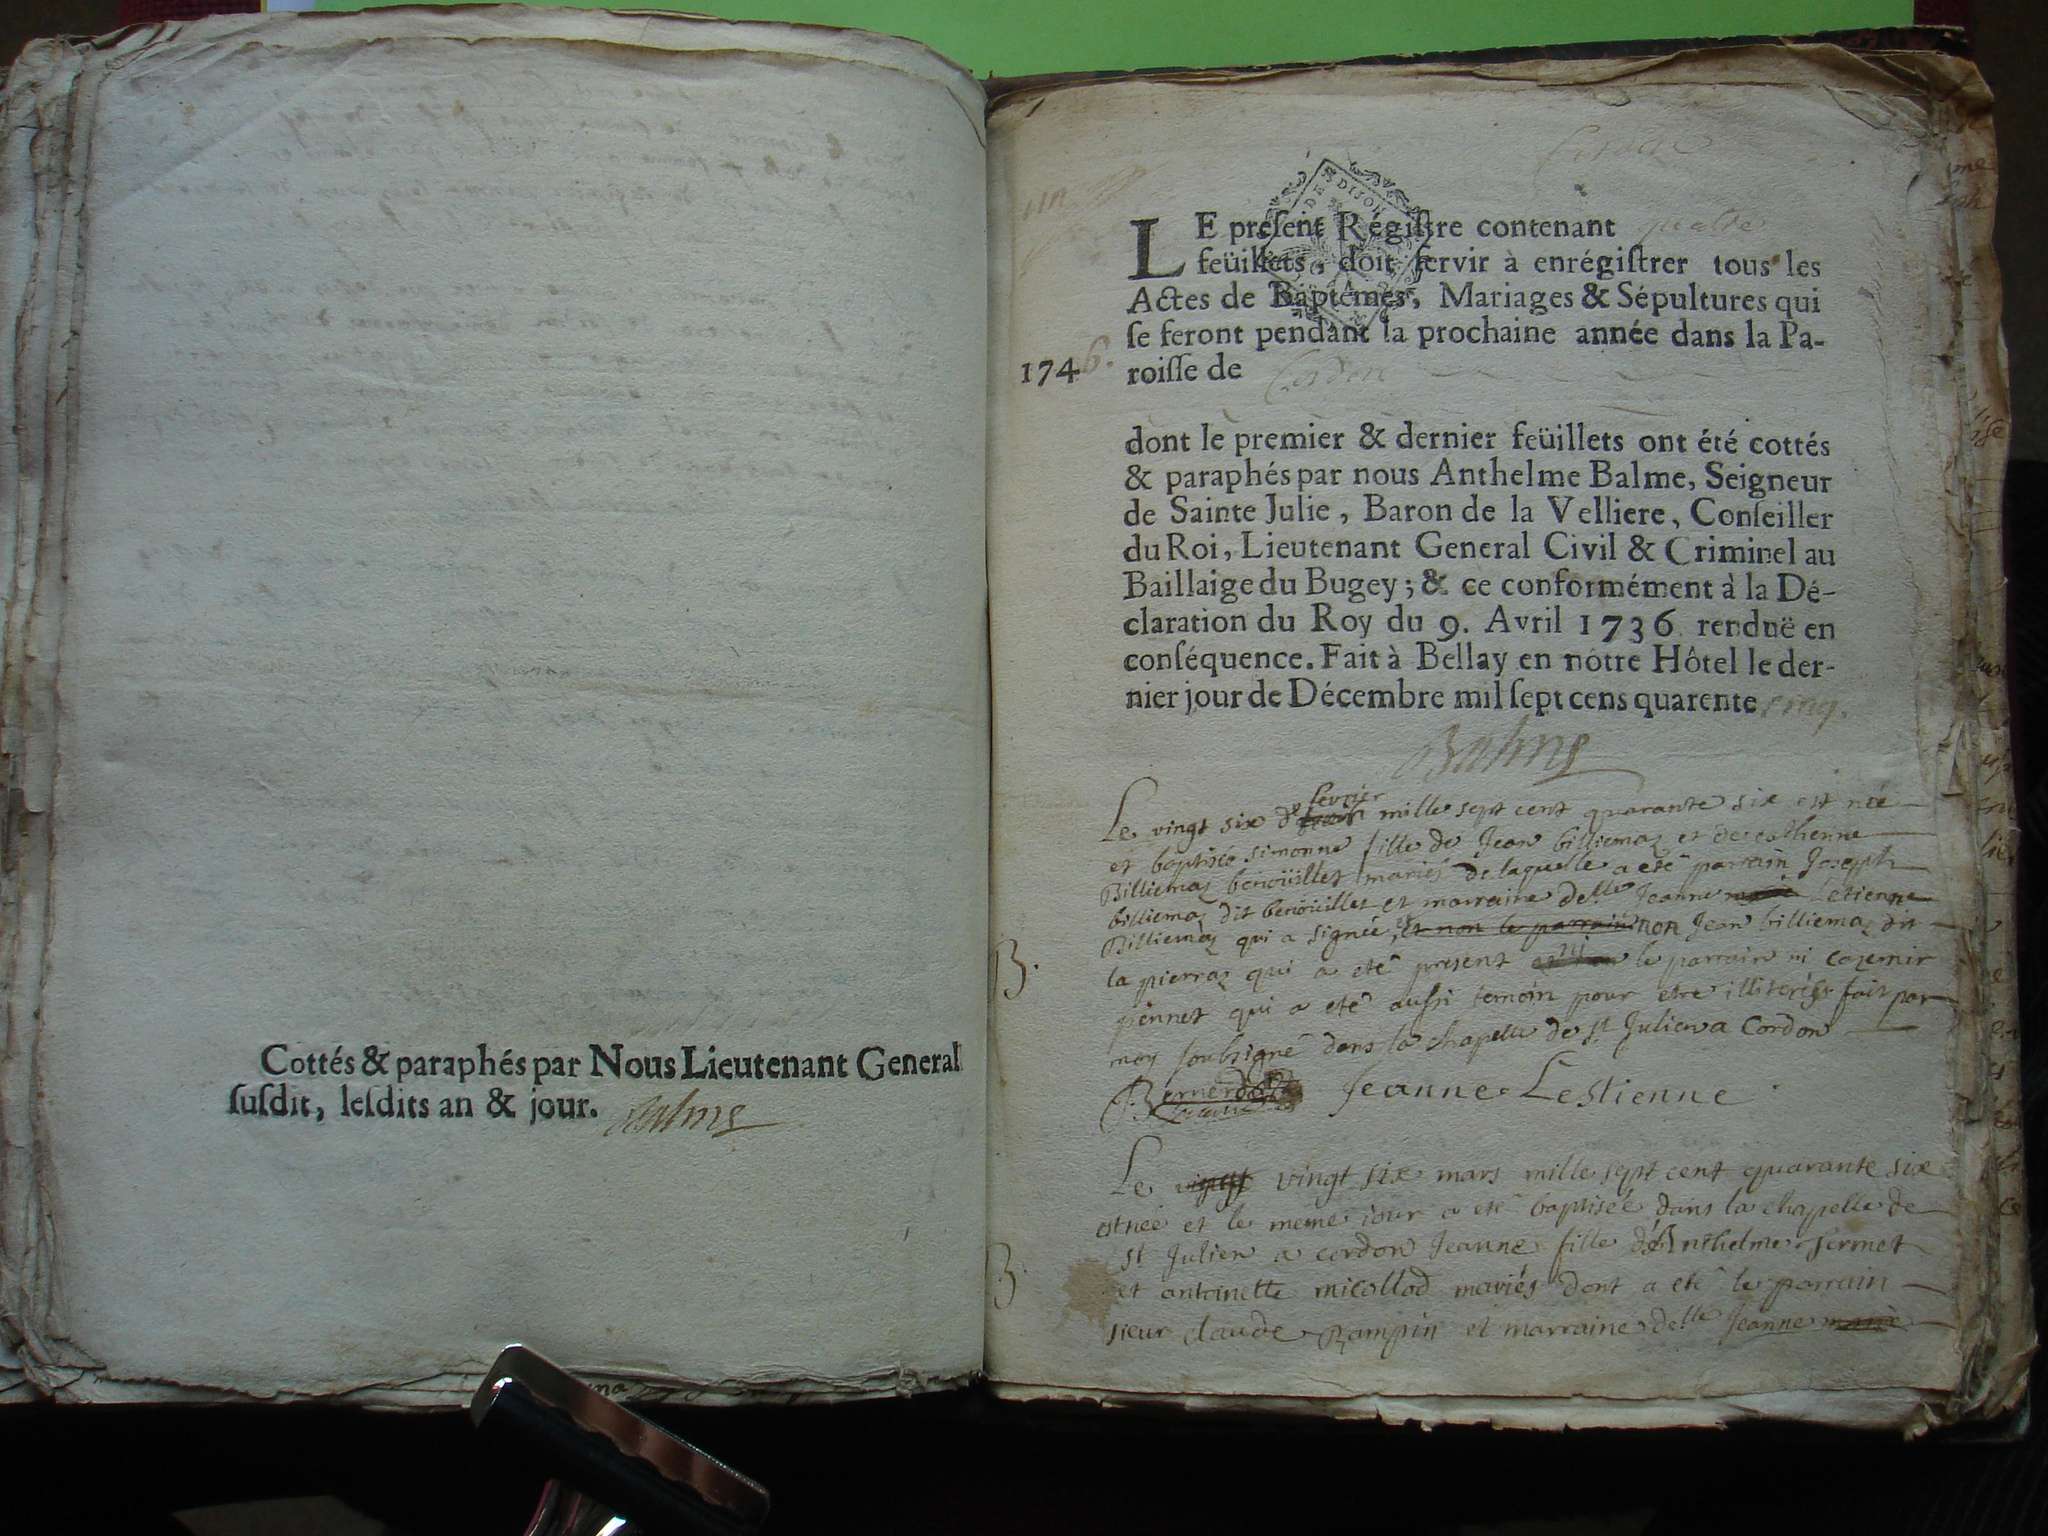 Cottés & paraphés par Nous Lieutenant General
ſuſdit, leſdits an & jour. Balme
Cordon
un
DIJON
LE preſent Régiſtre contenant quatre
feüillets, doit ſervir à enrégiſtrer tous les
Actes de Baptêmes, Mariages & Sépultures qui
ſe feront pendant la prochaine année dans la Pa-
1746. roiſſe de Cordon
dont le premier & dernier feüillets ont été cottés
& paraphés par nous Anthelme Balme, Seigneur
de Sainte Julie, Baron de la Velliere, Conſeiller
du Roi, Lieutenant General Civil & Criminel au
Baillaige du Bugey; & ce conformément à la Dé-
claration du Roy du 9. Avril 1736 renduë en
conſéquence. Fait à Bellay en nôtre Hôtel le der-
nier jour de Décembre mil ſept cens quarente cinq.
Balme
Le vingt six de fevrier mille sept cent quarante six est née
et baptisée simonne fille de Jean billiemaz et de catherine
Billiemaz benoüillet mariés de laquelle a eté parrain Joseph
billiemaz dit benoüillet et marraine delle Jeanne marie Letienne
Billiemaz qui a signée, et non le parrain non Jean billiemaz dit
B. la pierraz qui a eté present ni le parrain ni cazemir
pennet qui a eté aussi temoin pour etre illiterés fait par
moy soubsigné dans la chapelle de st Julien a Cordon
Jeanne Lestienne
Le vingt six mars mille sept cent quarante six
est née et le meme jour a eté baptisée dans la chapelle de
st Julien a cordon Jeanne fille d'Anthelme sermet
B. et antoinette micollod mariés dont a eté le parrain
sieur claude Rampin et marraine delle Jeanne marie